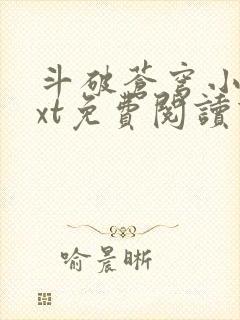 斗破苍穹小
xt免費閱讀
喻晨晰